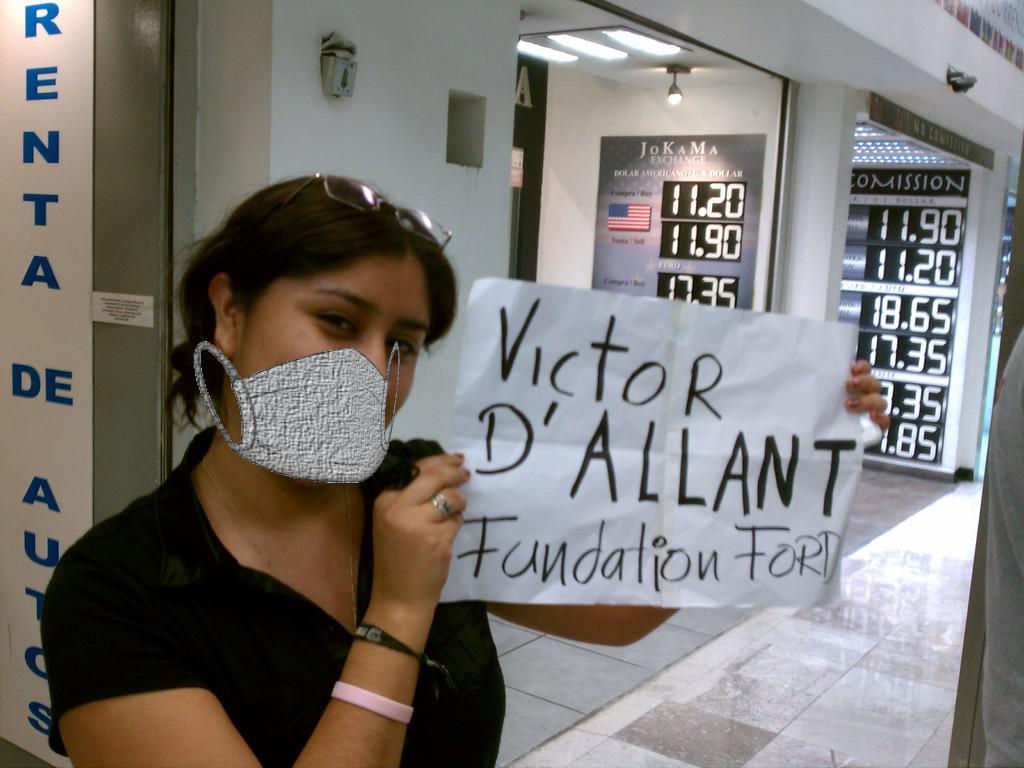 RENTA DE AUTOS
A
JOKAMA
EXCHANGE
DOLAR AMERICANO / U.S. DOLLAR
Compra / Buy
11.20
Venta / Sell
11.90
EURO
Compra / Buy
17.35
COMISSION
U.S. DOLLAR
11.90
11.20
18.65
17.35
.35
.85
VICTOR
D'ALLANT
Fundation FORD